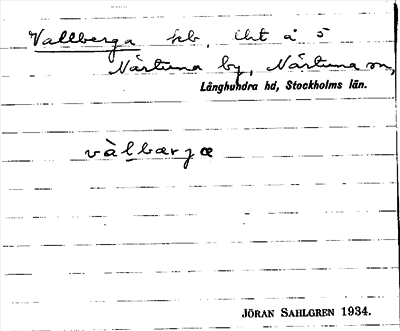 Vallberga
Närtuna by, Närtuna sn,
Långhundra hd, Stockholms län.
vàlbærjæ
JÖRAN SAHLGREN 1934.